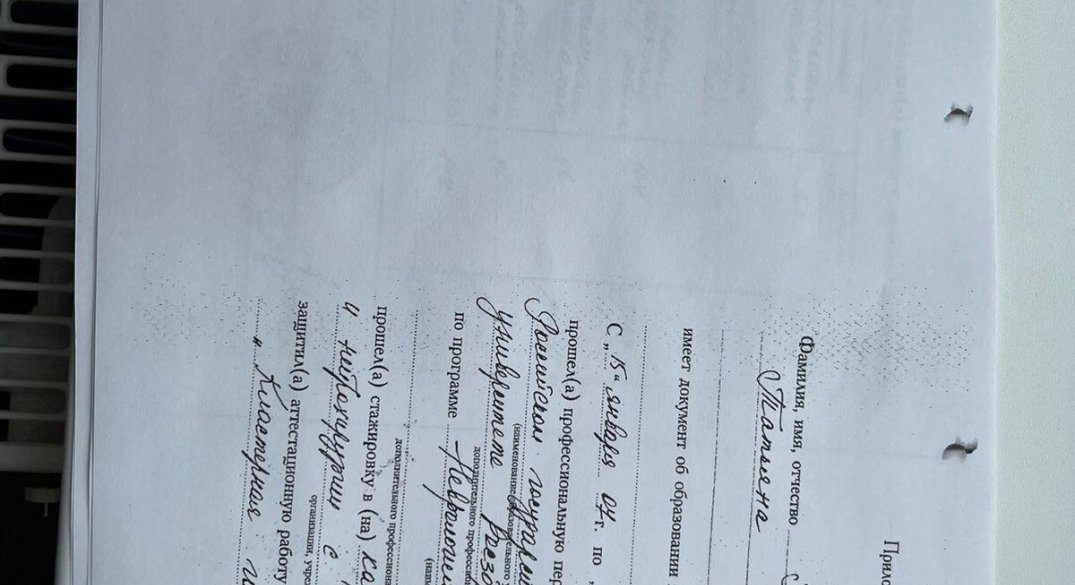 Прило
Фамилия, имя, отчество
Татьяна
имеет документ об образовании
С „15“ января 04 г. по „
прошел(а) профессиональную пер
Российском государ
(наименование образовательного
университете
дополнительного професси
по программе
(наим
прошел(а) стажировку в (на) ка
дополнительного профессион
и нейрохирургии с
организации, учре
защитил(а) аттестационную работу
„Кластерная го